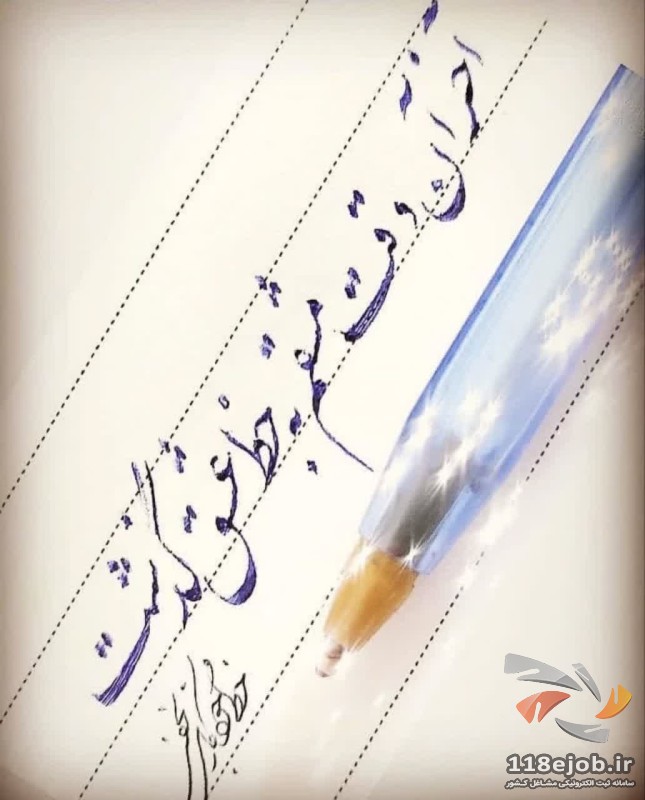 آخر آن وقت مشقم به خط عشق گذشت
118ejob.ir
سامانه ثبت الکترونیکی مشاغل کشور